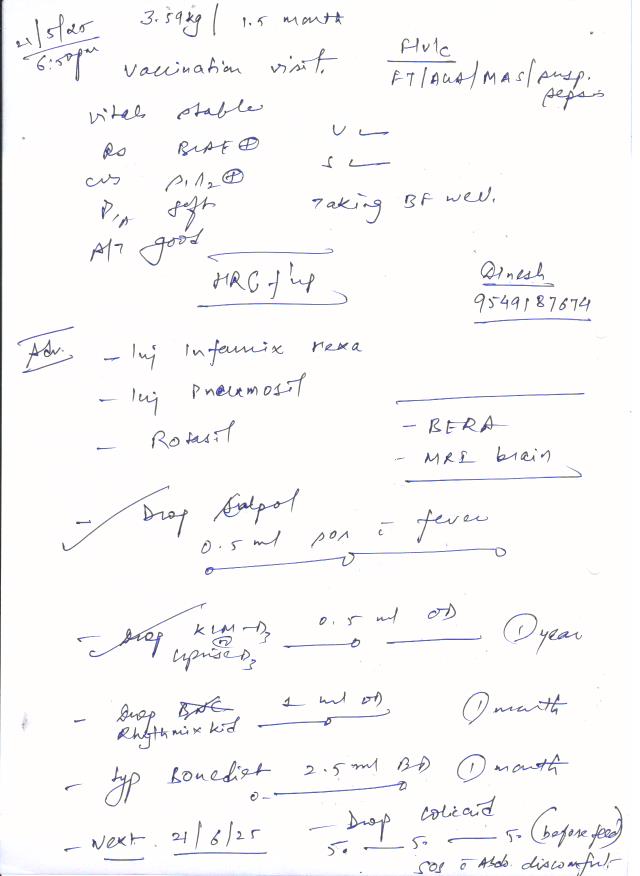 21/5/25
6:50pm
3.59kg / 1.5 month
Vaccination visit.
F/U/C
FT/AGA/MAS/susp. sepsis
Vitals stable
RS BLAE ⊕
U ✓
CVS S1S2 ⊕
S ✓
P/A soft
Taking BF well.
A/T good
HRC f/up
Dinesh
9549187674
Adv.
- Inj Infanrix Hexa
- Inj Pneumosil
- Rotasil
- BERA
- MRI brain
- Drop Calpol
0.5 ml SOS c̄ fever
- Drop KLM-D3 0.5 ml OD ① year
or
Uprise D3
- Drop 1 ml OD ① month
Rhythmix kid
- Syp Bonediet 2.5 ml BD ① month
- Next 21/6/25
- Drop Colicaid
5. — 5. — 5. (before feed)
SOS c̄ Abdo. discomfort.